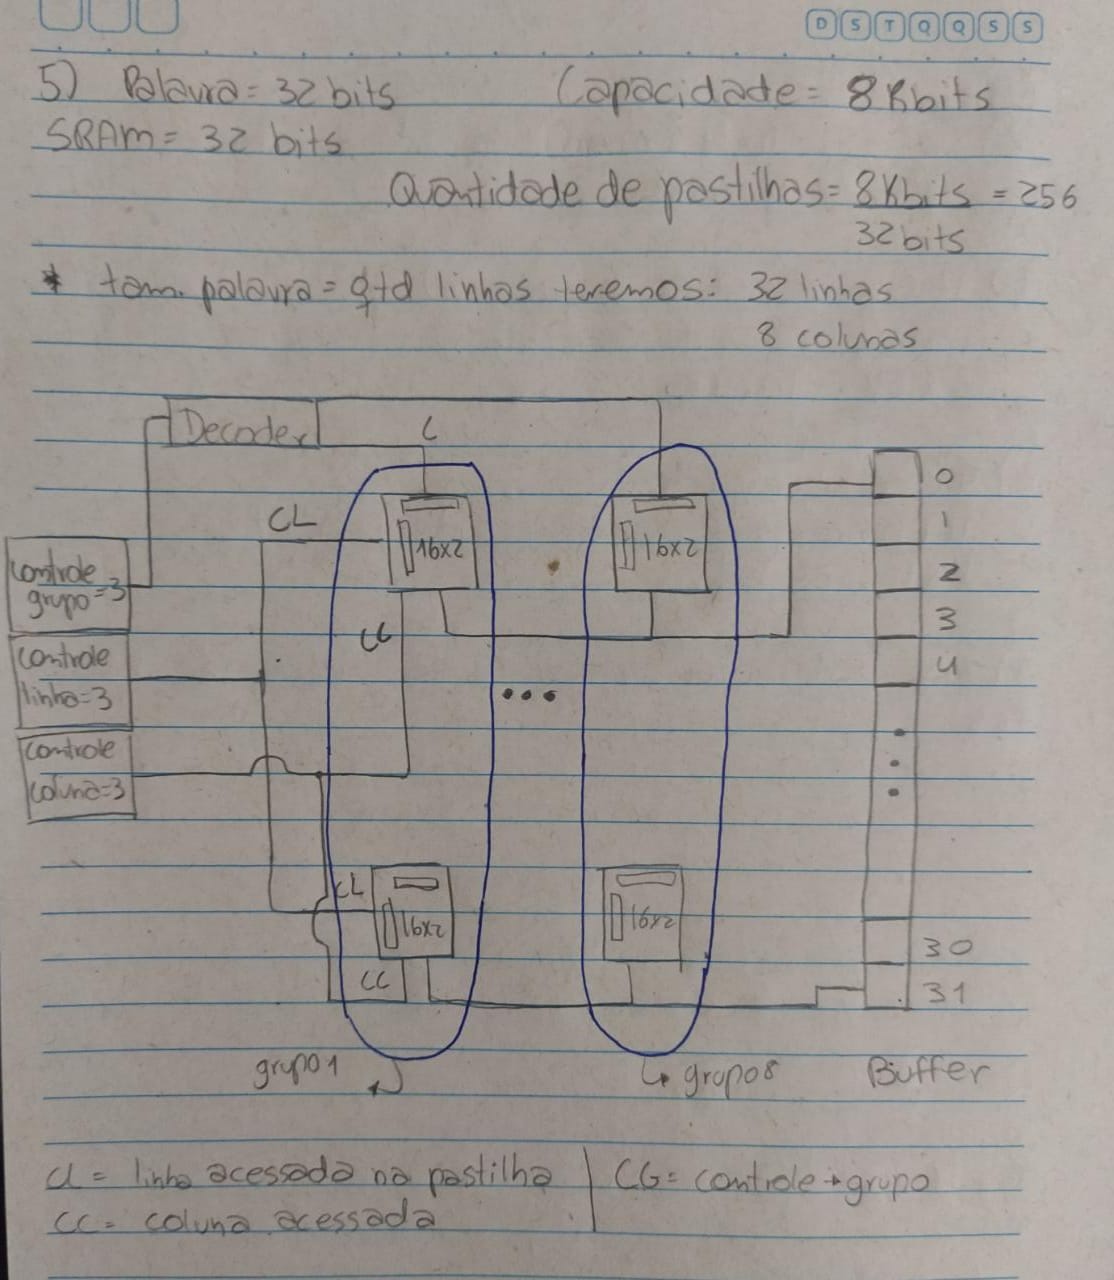 D S T Q Q S S
5) Palavra = 32 bits Capacidade = 8Kbits
SRAM = 32 bits
Quantidade de pastilhas = 8Kbits = 256
32 bits
* tam. palavra = qtd linhas teremos: 32 linhas
8 colunas
Decoder
C
CL
16x2
16x2
controle
grupo=3
controle
linha=3
controle
coluna=3
CC
...
CL
16x2
16x2
CC
0
1
2
3
4
30
31
grupo1
grupo8
Buffer
CL = linha acessada na pastilha
CC = coluna acessada
CG = controle → grupo